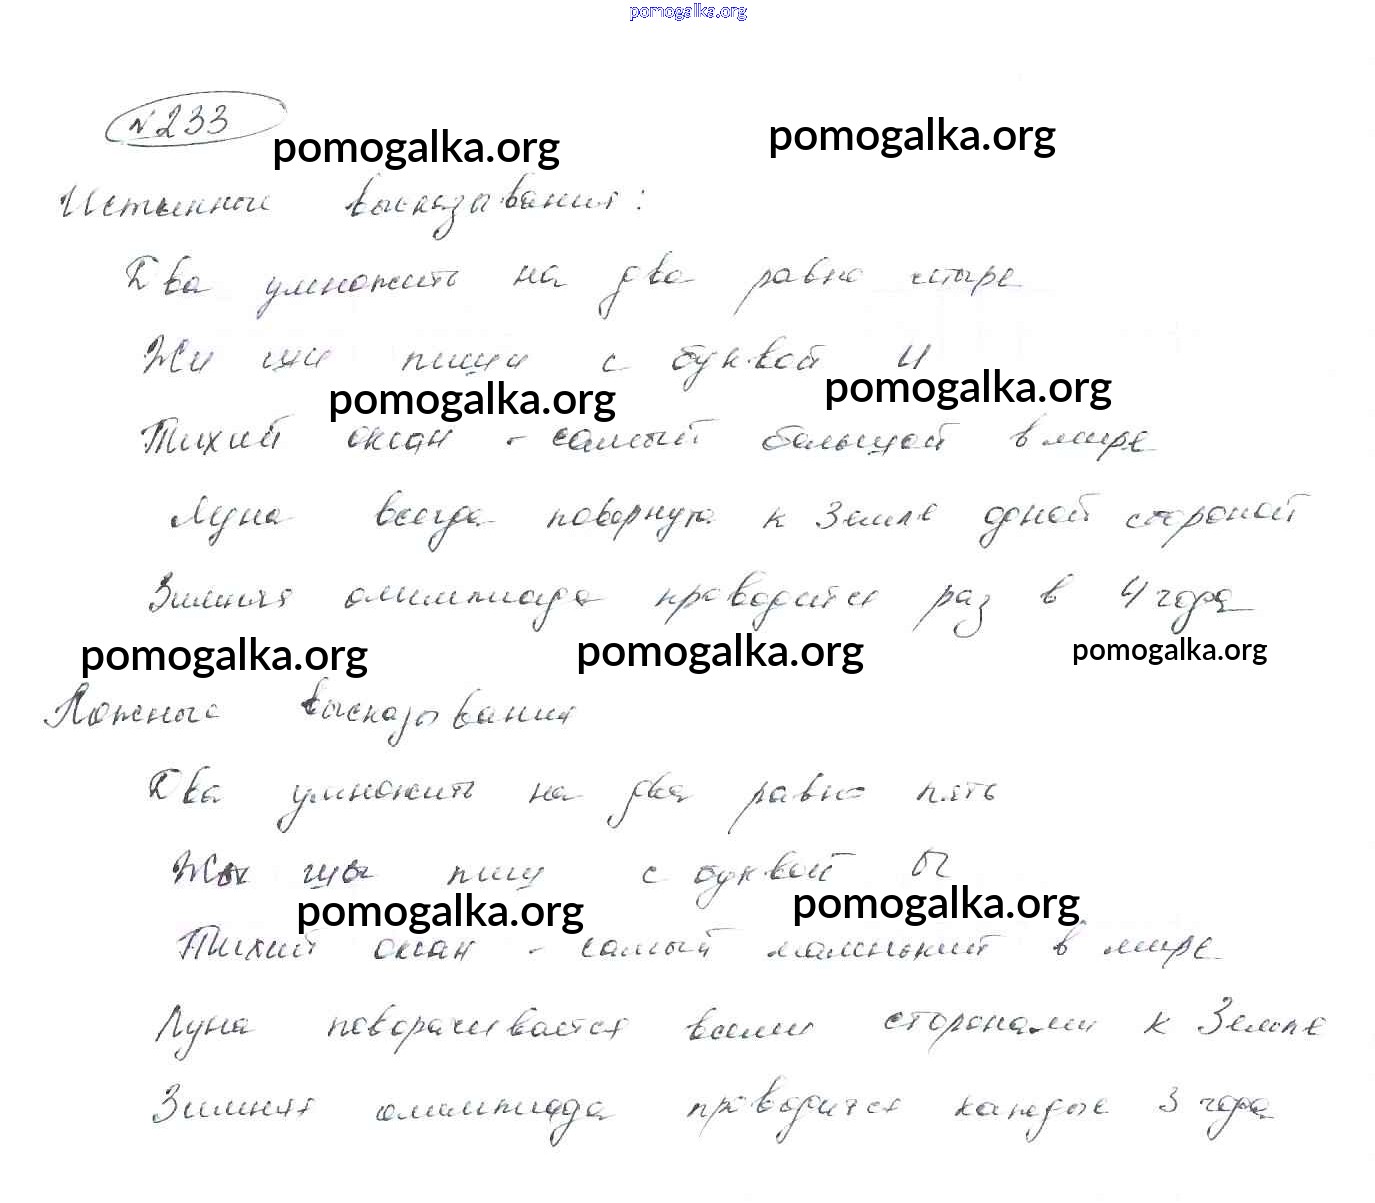 pomogalka.org
№ 233
pomogalka.org pomogalka.org
Истинные высказывания:
Два умножить на два равно четыре
Жи ши пиши с буквой И
pomogalka.org pomogalka.org
Тихий океан - самый большой в мире
Луна всегда повернута к Земле одной стороной
Зимняя олимпиада проводится раз в 4 года
pomogalka.org pomogalka.org pomogalka.org
Ложные высказывания
Два умножить на два равно пять
Жы шы пиш с буквой Ы
pomogalka.org pomogalka.org
Тихий океан - самый маленький в мире
Луна поворачивается всеми сторонами к Земле
Зимняя олимпиада проводится каждые 3 года